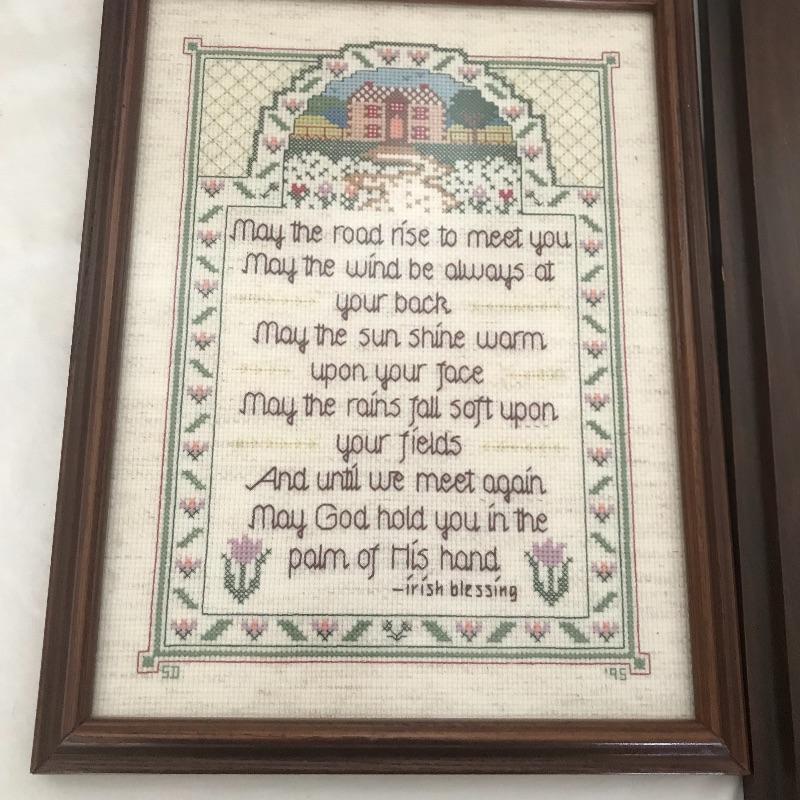 May the road rise to meet you
May the wind be always at
your back
May the sun shine warm
upon your face
May the rains fall soft upon
your fields
And until we meet again
May God hold you in the
palm of His hand
-irish blessing
SD '95